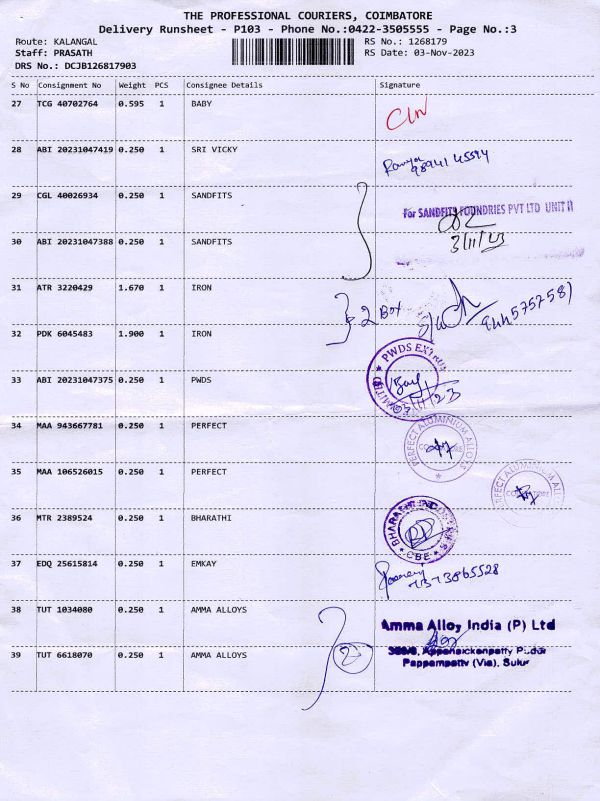 THE PROFESSIONAL COURIERS, COIMBATORE
Delivery Runsheet - P103 - Phone No.:0422-3505555 - Page No.:3
Route: KALANGAL RS No.: 1268179
Staff: PRASATH RS Date: 03-Nov-2023
DRS No.: DCJB126817903
S No Consignment No Weight PCS Consignee Details Signature
27 TCG 40702764 0.595 1 BABY
28 ABI 20231047419 0.250 1 SRI VICKY
29 CGL 40026934 0.250 1 SANDFITS
For SANDFITS FOUNDRIES PVT LTD UNIT II
30 ABI 20231047388 0.250 1 SANDFITS 3/11/23
31 ATR 3220429 1.670 1 IRON
2 Box
32 PDK 6045483 1.900 1 IRON
33 ABI 20231047375 0.250 1 PWDS
03/11/23
34 MAA 943667781 0.250 1 PERFECT PERFECT ALUMINIUM ALLOYS
35 MAA 106526015 0.250 1 PERFECT
36 MTR 2389524 0.250 1 BHARATHI
CBE
37 EDQ 25615814 0.250 1 EMKAY
38 TUT 1034080 0.250 1 AMMA ALLOYS Amma Alloy India (P) Ltd
39 TUT 6618070 0.250 1 AMMA ALLOYS 2 Appanaickenpatty Pudur
Pappampatty (Via), Sulur